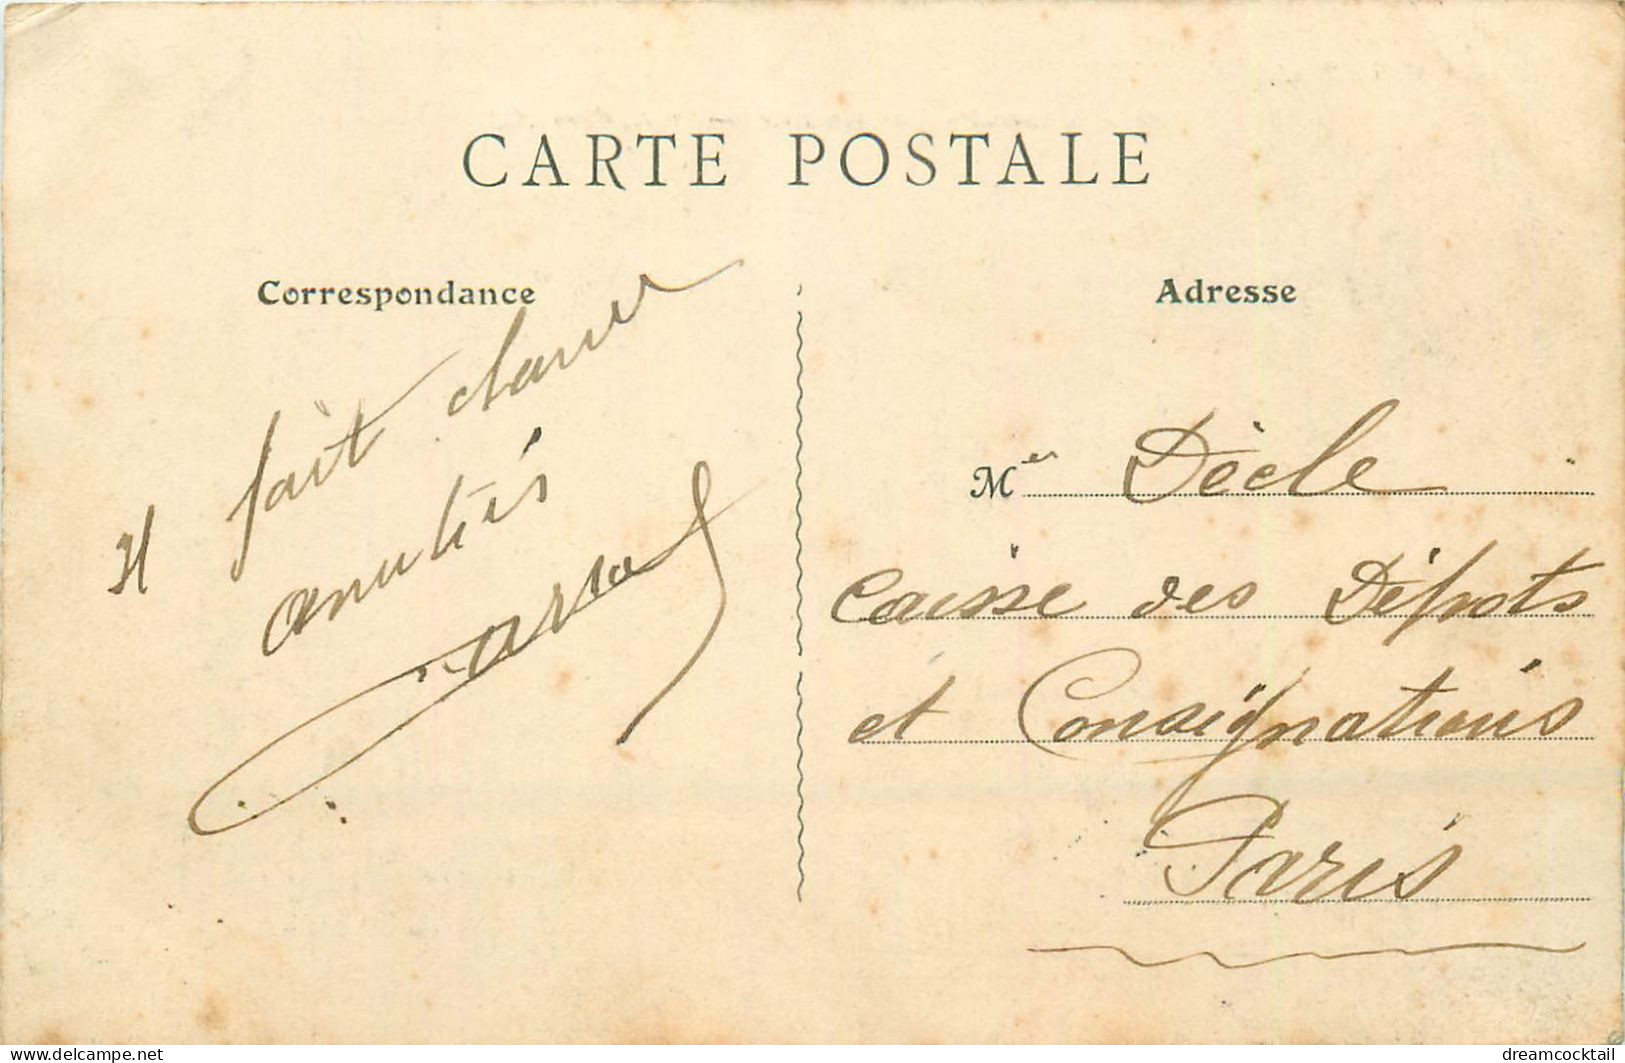 CARTE POSTALE
Correspondance
Il fait chaud
amitiés
Adresse
Mr Dècle
Caisse des Dépots
et Consignations
Paris
delcampe.net
dreamcocktail